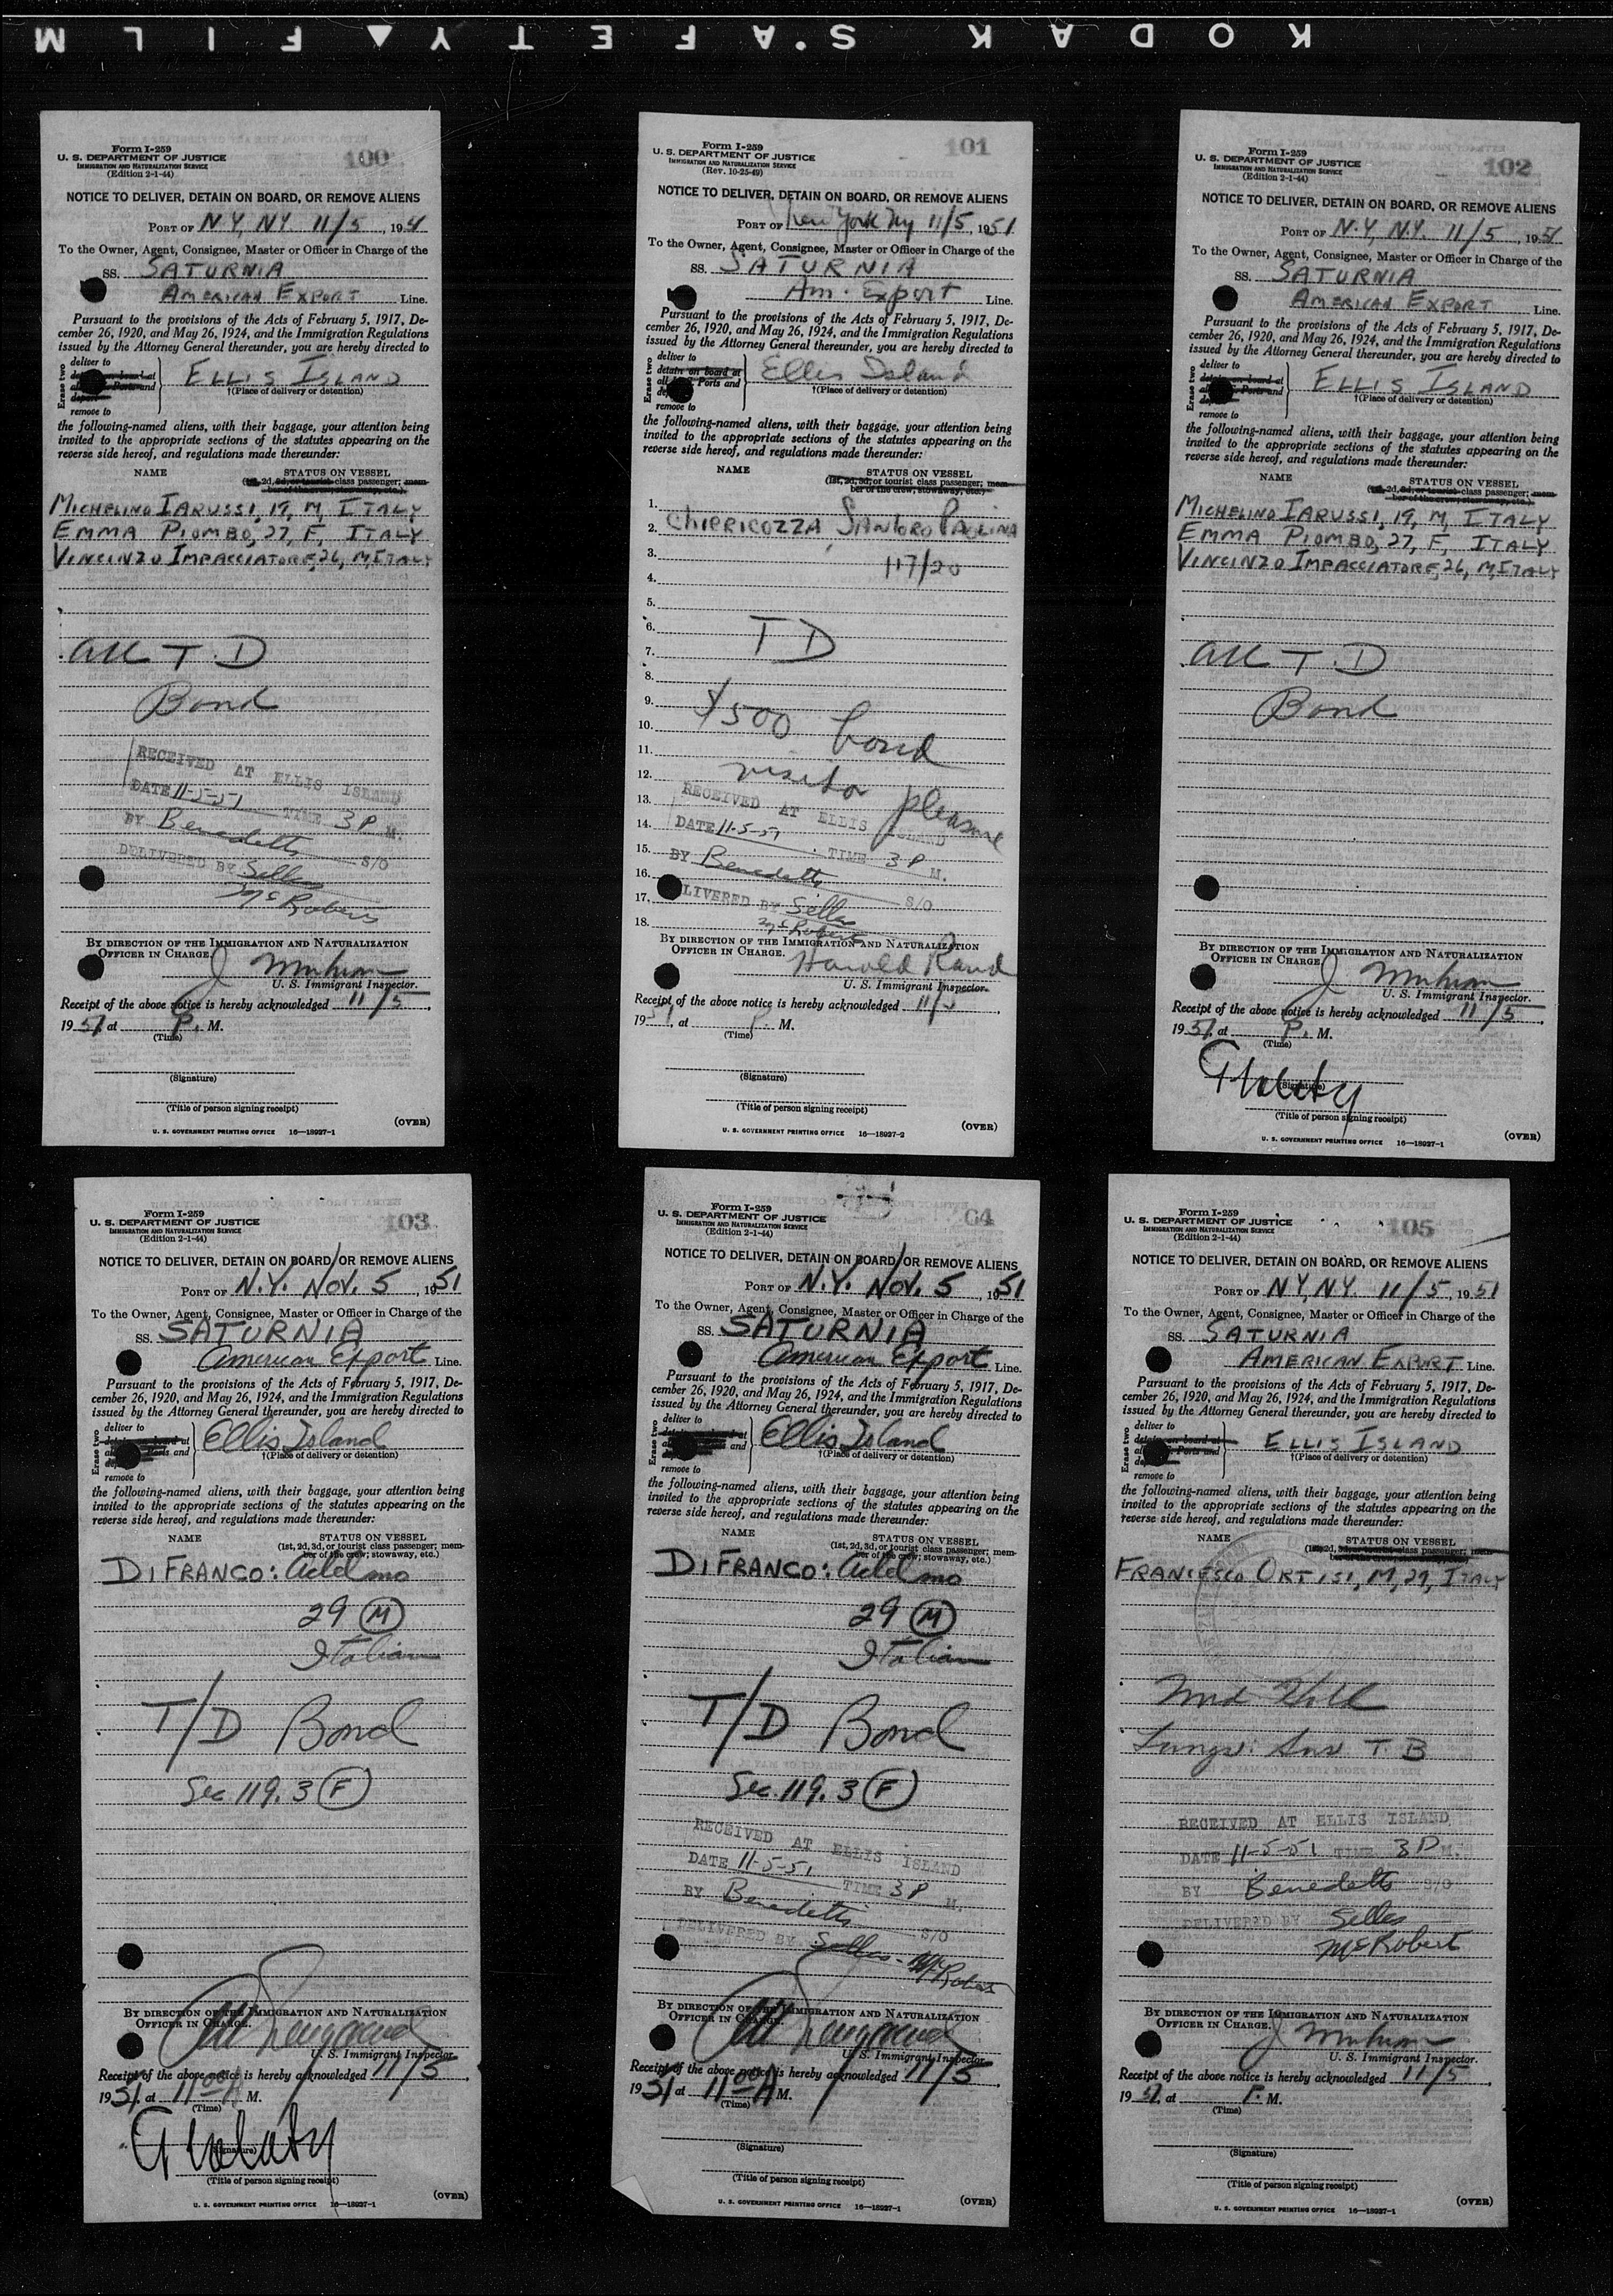 KODAK SAFETY FILM
Form I-259
U. S. DEPARTMENT OF JUSTICE
IMMIGRATION AND NATURALIZATION SERVICE
(Edition 2-1-44)
100
NOTICE TO DELIVER, DETAIN ON BOARD, OR REMOVE ALIENS
PORT OF N.Y, N.Y. 11/5, 1951
To the Owner, Agent, Consignee, Master or Officer in Charge of the
SS. SATURNIA
AMERICAN EXPORT Line.
Pursuant to the provisions of the Acts of February 5, 1917, De-
cember 26, 1920, and May 26, 1924, and the Immigration Regulations
issued by the Attorney General thereunder, you are hereby directed to
Erase two
deliver to
detain on board at
Ports and
depor
remove to
ELLIS ISLAND
†(Place of delivery or detention)
the following-named aliens, with their baggage, your attention being
invited to the appropriate sections of the statutes appearing on the
reverse side hereof, and regulations made thereunder:
NAME STATUS ON VESSEL
(1st, 2d, 3d, or tourist class passenger; mem-
ber of the crew; stowaway, etc.)
MICHELINO IARUSSI, 19, M, ITALY
EMMA PIOMBO, 27, F, ITALY
VINCINZO IMPACCIATORE, 26, M, ITALY
all T.D
Bond
RECEIVED AT ELLIS ISLAND
DATE 11-5-51 TIME 3 P M.
BY Benedetto S/O
DELIVERED BY Selles
McRobert
BY DIRECTION OF THE IMMIGRATION AND NATURALIZATION
OFFICER IN CHARGE.
U. S. Immigrant Inspector.
Receipt of the above notice is hereby acknowledged 11/5,
1951, at P. M.
(Time)
(Signature)
(Title of person signing receipt)
(OVER)
U. S. GOVERNMENT PRINTING OFFICE 16—18927-1
Form I-259
U. S. DEPARTMENT OF JUSTICE
IMMIGRATION AND NATURALIZATION SERVICE
(Rev. 10-25-49)
101
NOTICE TO DELIVER, DETAIN ON BOARD, OR REMOVE ALIENS
PORT OF New York Ny 11/5, 1951
To the Owner, Agent, Consignee, Master or Officer in Charge of the
SS. SATURNIA
Am. Export Line.
Pursuant to the provisions of the Acts of February 5, 1917, De-
cember 26, 1920, and May 26, 1924, and the Immigration Regulations
issued by the Attorney General thereunder, you are hereby directed to
Erase two
deliver to
detain on board at
all Ports and
de
remove to
Ellis Island
†(Place of delivery or detention)
the following-named aliens, with their baggage, your attention being
invited to the appropriate sections of the statutes appearing on the
reverse side hereof, and regulations made thereunder:
NAME STATUS ON VESSEL
(1st, 2d, 3d, or tourist class passenger; mem-
ber of the crew, stowaway, etc.)
1.
2. CHIPRICOZZA SANTORO PAOLINA
3. 117/20
4.
5.
6. T D
7.
8.
9. $500 bond
10.
11.
12. visitor pleasure
13. RECEIVED AT ELLIS ISLAND
14. DATE 11-5-51 TIME 3 P M.
15. BY Benedetto S/O
16.
17. LIVERED BY Selles
18. McRobert
BY DIRECTION OF THE IMMIGRATION AND NATURALIZATION
OFFICER IN CHARGE. Harold Rand
U. S. Immigrant Inspector.
Receipt of the above notice is hereby acknowledged 11/5,
1951, at P. M.
(Time)
(Signature)
(Title of person signing receipt)
(OVER)
U. S. GOVERNMENT PRINTING OFFICE 16—18927-2
Form I-259
U. S. DEPARTMENT OF JUSTICE
IMMIGRATION AND NATURALIZATION SERVICE
(Edition 2-1-44)
102
NOTICE TO DELIVER, DETAIN ON BOARD, OR REMOVE ALIENS
PORT OF N.Y, N.Y. 11/5, 1951
To the Owner, Agent, Consignee, Master or Officer in Charge of the
SS. SATURNIA
AMERICAN EXPORT Line.
Pursuant to the provisions of the Acts of February 5, 1917, De-
cember 26, 1920, and May 26, 1924, and the Immigration Regulations
issued by the Attorney General thereunder, you are hereby directed to
Erase two
deliver to
detain on board at
Ports and
remove to
ELLIS ISLAND
†(Place of delivery or detention)
the following-named aliens, with their baggage, your attention being
invited to the appropriate sections of the statutes appearing on the
reverse side hereof, and regulations made thereunder:
NAME STATUS ON VESSEL
(1st, 2d, 3d, or tourist class passenger; mem-
ber of the crew, stowaway, etc.)
MICHELINO IARUSSI, 19, M, ITALY
EMMA PIOMBO, 27, F, ITALY
VINCINZO IMPACCIATORE, 26, M, ITALY
all T.D
Bond
BY DIRECTION OF THE IMMIGRATION AND NATURALIZATION
OFFICER IN CHARGE.
U. S. Immigrant Inspector.
Receipt of the above notice is hereby acknowledged 11/5,
1951, at P. M.
(Time)
(Signature)
(Title of person signing receipt)
(OVER)
U. S. GOVERNMENT PRINTING OFFICE 16—18927-1
Form I-259
U. S. DEPARTMENT OF JUSTICE
IMMIGRATION AND NATURALIZATION SERVICE
(Edition 2-1-44)
103
NOTICE TO DELIVER, DETAIN ON BOARD, OR REMOVE ALIENS
PORT OF N.Y. Nov. 5, 1951
To the Owner, Agent, Consignee, Master or Officer in Charge of the
SS. SATURNIA
American Export Line.
Pursuant to the provisions of the Acts of February 5, 1917, De-
cember 26, 1920, and May 26, 1924, and the Immigration Regulations
issued by the Attorney General thereunder, you are hereby directed to
Erase two
deliver to
at
Ports and
remove to
Ellis Island
†(Place of delivery or detention)
the following-named aliens, with their baggage, your attention being
invited to the appropriate sections of the statutes appearing on the
reverse side hereof, and regulations made thereunder:
NAME STATUS ON VESSEL
(1st, 2d, 3d, or tourist class passenger; mem-
ber of the crew; stowaway, etc.)
DIFRANCO: Adelmo
29 M
Italian
T/D Bond
Sec 119.3 F
BY DIRECTION OF THE IMMIGRATION AND NATURALIZATION
OFFICER IN CHARGE.
U. S. Immigrant Inspector.
Receipt of the above notice is hereby acknowledged 11/5,
1951, at 11 00 A M.
(Time)
(Signature)
(Title of person signing receipt)
(OVER)
U. S. GOVERNMENT PRINTING OFFICE 16—18927-1
Form I-259
U. S. DEPARTMENT OF JUSTICE
IMMIGRATION AND NATURALIZATION SERVICE
(Edition 2-1-44)
64
NOTICE TO DELIVER, DETAIN ON BOARD, OR REMOVE ALIENS
PORT OF N.Y. Nov. 5, 1951
To the Owner, Agent, Consignee, Master or Officer in Charge of the
SS. SATURNIA
American Export Line.
Pursuant to the provisions of the Acts of February 5, 1917, De-
cember 26, 1920, and May 26, 1924, and the Immigration Regulations
issued by the Attorney General thereunder, you are hereby directed to
Erase two
deliver to
at
and
remove to
Ellis Island
†(Place of delivery or detention)
the following-named aliens, with their baggage, your attention being
invited to the appropriate sections of the statutes appearing on the
reverse side hereof, and regulations made thereunder:
NAME STATUS ON VESSEL
(1st, 2d, 3d, or tourist class passenger; mem-
ber of the crew; stowaway, etc.)
DIFRANCO: Adelmo
29 M
Italian
T/D Bond
Sec. 119.3 F
RECEIVED AT ELLIS ISLAND
DATE 11-5-51 TIME 3 P M.
BY Benedetto S/O
DELIVERED BY Selles - McRobert
BY DIRECTION OF THE IMMIGRATION AND NATURALIZATION
OFFICER IN CHARGE.
U. S. Immigrant Inspector
Receipt of the above notice is hereby acknowledged 11/5,
1951 at 11 00 A M.
(Time)
(Signature)
(Title of person signing receipt)
(OVER)
U. S. GOVERNMENT PRINTING OFFICE 16—18927-1
Form I-259
U. S. DEPARTMENT OF JUSTICE
IMMIGRATION AND NATURALIZATION SERVICE
(Edition 2-1-44)
105
NOTICE TO DELIVER, DETAIN ON BOARD, OR REMOVE ALIENS
PORT OF NY, NY. 11/5, 1951
To the Owner, Agent, Consignee, Master or Officer in Charge of the
SS. SATURNIA
AMERICAN EXPORT Line.
Pursuant to the provisions of the Acts of February 5, 1917, De-
cember 26, 1920, and May 26, 1924, and the Immigration Regulations
issued by the Attorney General thereunder, you are hereby directed to
Erase two
deliver to
detain on board at
Ports and
de
remove to
ELLIS ISLAND
†(Place of delivery or detention)
the following-named aliens, with their baggage, your attention being
invited to the appropriate sections of the statutes appearing on the
reverse side hereof, and regulations made thereunder:
NAME STATUS ON VESSEL
(1st, 2d, 3d, or tourist class passenger; mem-
FRANCESCO ORTISI, M, 29, ITALY
Med Hold
Lungs: Sus T. B
RECEIVED AT ELLIS ISLAND
DATE 11-5-51 TIME 3 P M.
BY Benedetto S/O
DELIVERED BY Selles
McRobert
BY DIRECTION OF THE IMMIGRATION AND NATURALIZATION
OFFICER IN CHARGE.
U. S. Immigrant Inspector.
Receipt of the above notice is hereby acknowledged 11/5,
1951, at P. M.
(Time)
(Signature)
(Title of person signing receipt)
(OVER)
U. S. GOVERNMENT PRINTING OFFICE 16—18927-1